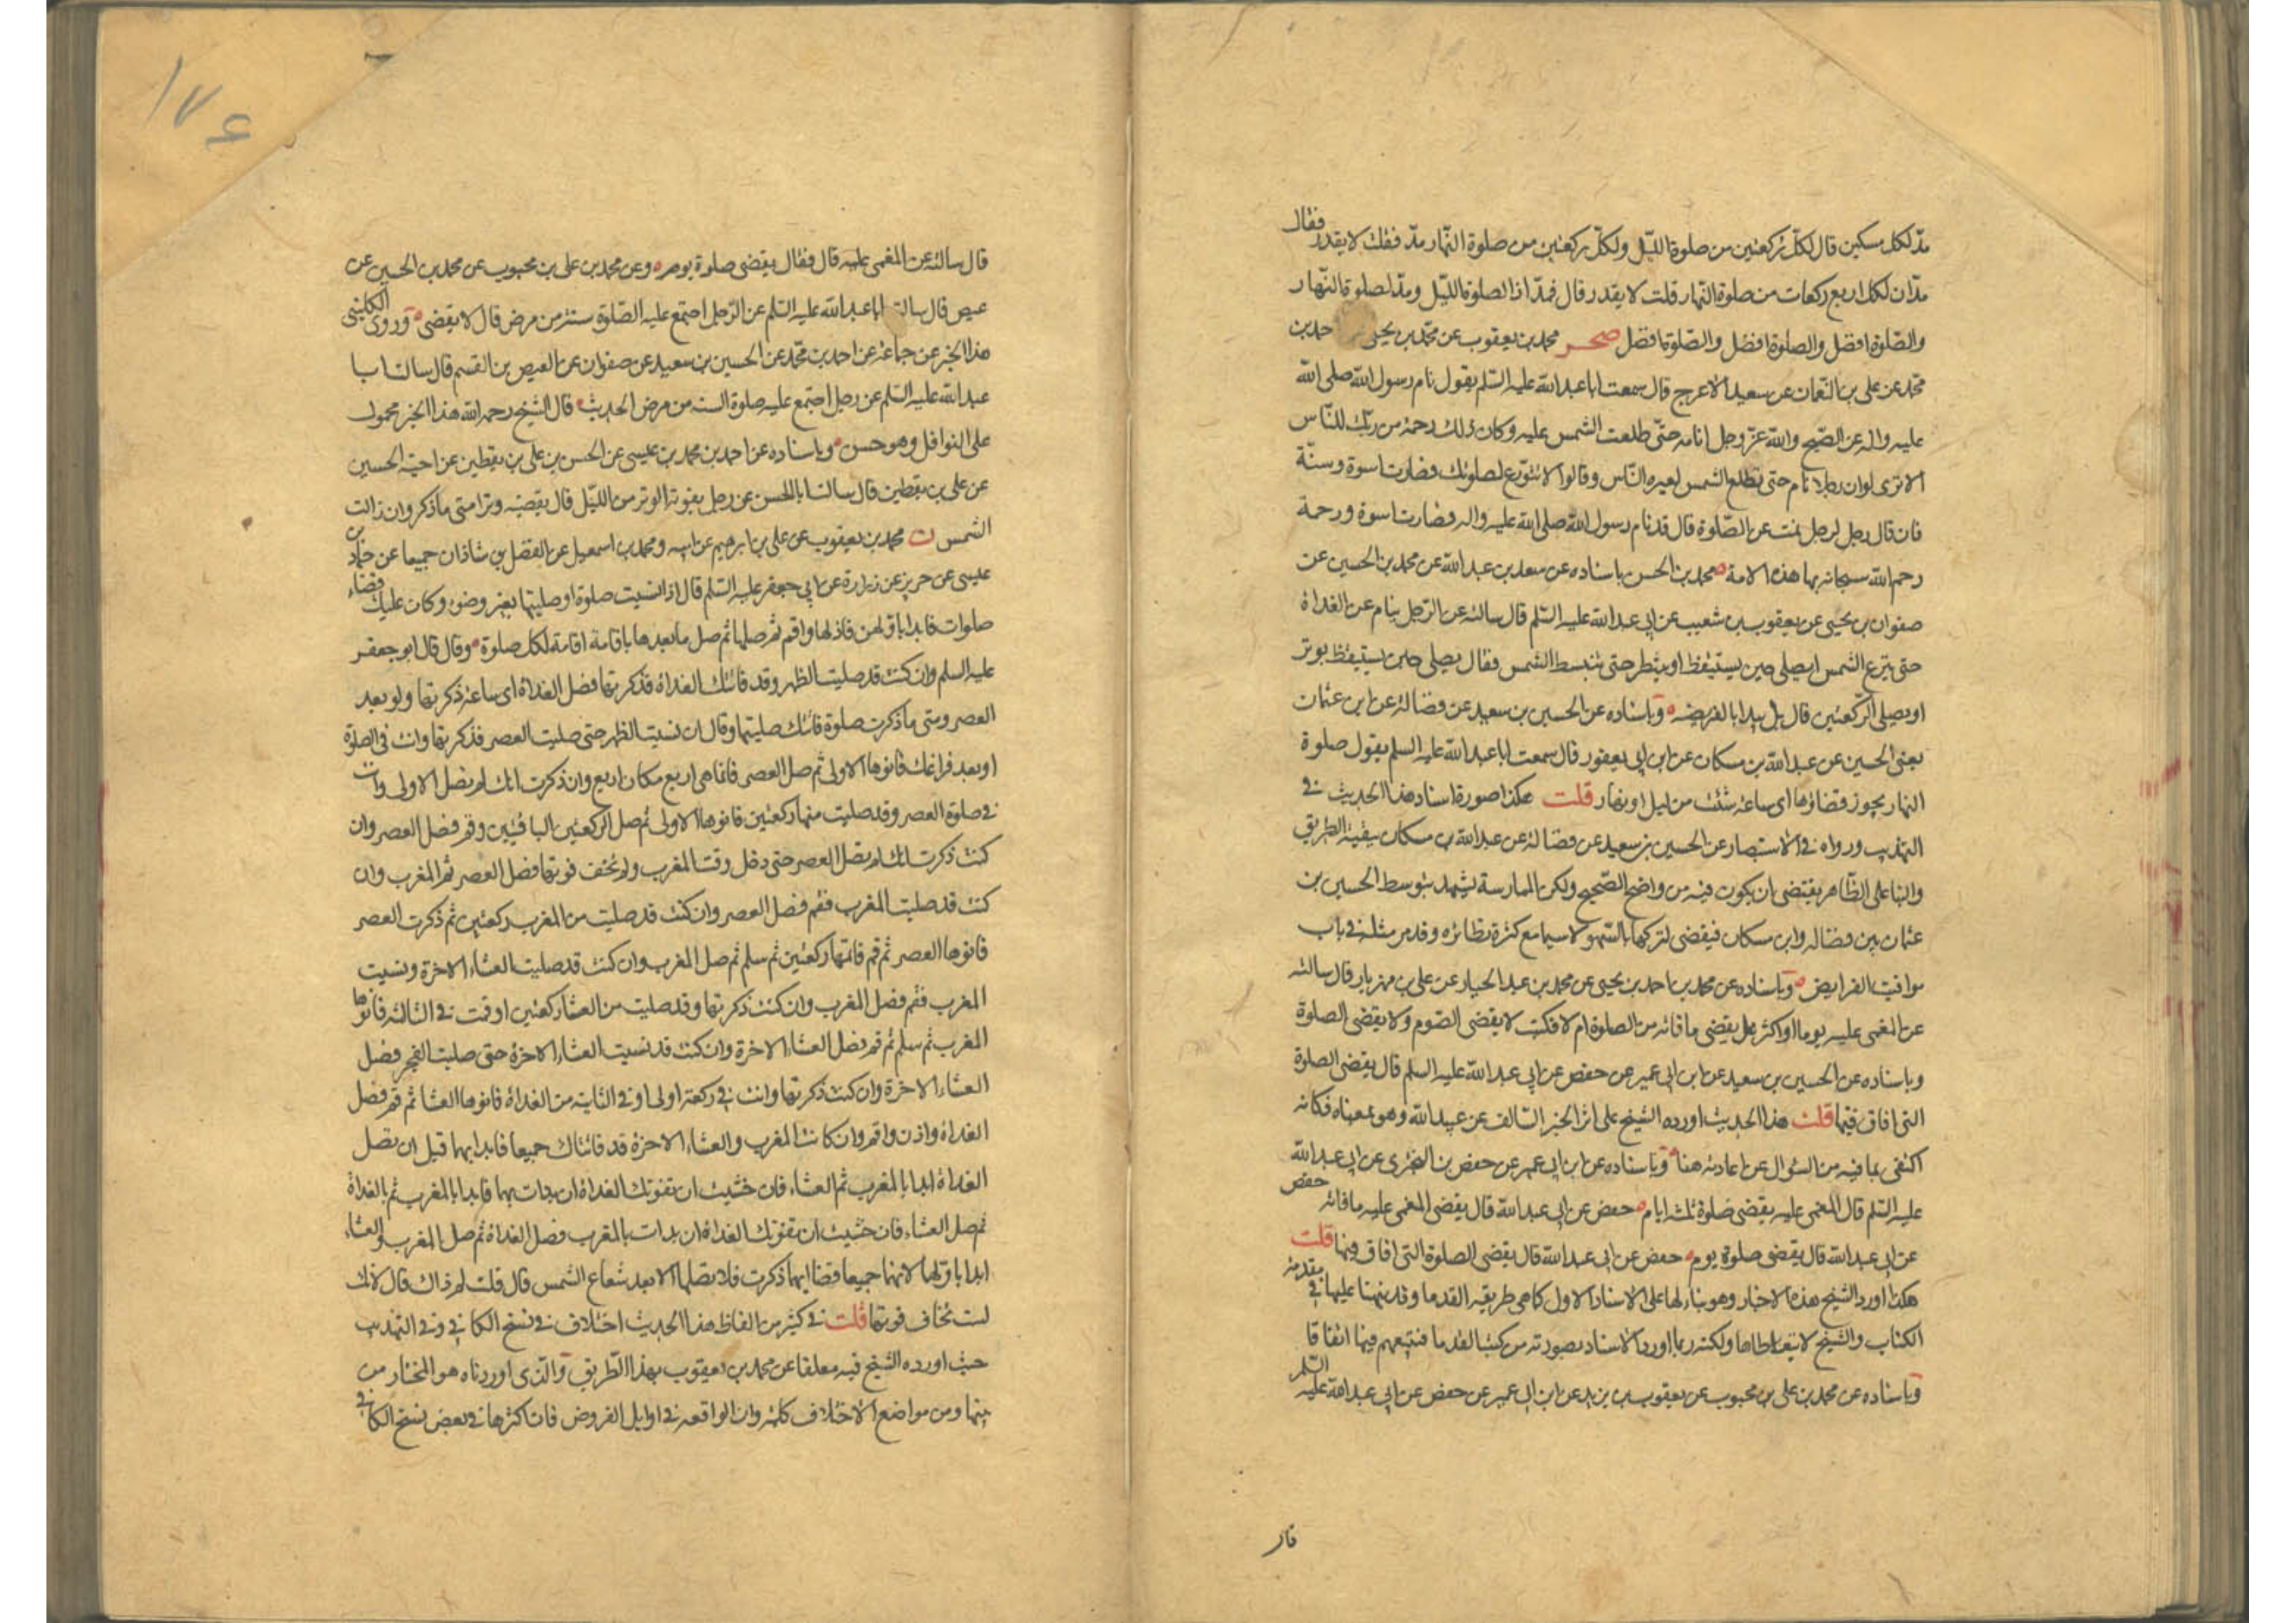 مدّ لكل مسكين قال لكلّ ركعتين من صلوة الليّل ولكلّ ركعتين من صلوة النّهار مدّ فقلت لا يقدر فقال
مدّان لكل اربع ركعات من صلوة النّهار قلت لا يقدر قال فمدّ اذا لصلوة اللّيل ومدّ لصلوة النّهار
والصّلوة افضل والصلوة افضل والصّلوة افضل صحر محمد بن يعقوب عن محمّد بن يحيى احمد بن
محمّد عن على بن النّعمان عن سعيد الاعرج قال سمعت ابا عبد الله عليه السّلم يقول نام رسول الله صلى الله
عليه واله عن الصّبح والله عزّ وجل انامه حتّى طلعت الشمس عليه وكان ذلك رحمة من ربّك للنّاس
الا ترى لو ان رجلا نام حتى تطلع الشمس لعيره النّاس وقالوا لا تتورّع لصلوتك فصارت اسوة وسنّة
فان قال رجل لرجل نمت عن الصّلوة قال قد نام رسول الله صلى الله عليه واله فصارت اسوة ورحمة
رحم الله سبحانه بها هذه الامة محمد بن الحسن باسناده عن سعد بن عبد الله عن محمد بن الحسين عن
صفوان بن يحيى عن يعقوب بن شعيب عن ابى عبد الله عليه السّلم قال سالته عن الرّجل ينام عن الغداة
حتى تبزغ الشمس ايصلى حين يستيقظ او ينتظر حتى تنبسط الشمس فقال يصلى حين يستيقظ يوتر
او يصلى الرّكعتين قال بل يبدا بالفريضه وباسناده عن الحسين بن سعيد عن فضالة عن ابن عثمان
يعنى الحسين عن عبد الله بن مسكان عن ابن ابى يعفور قال سمعت ابا عبد الله عليه السلم يقول صلوة
النهار يجوز قضاؤها اى ساعة شئت من ليل او نهار قلت هكذا صورة اسناد هذا الحديث فى
التهذيب ورواه فى الاستبصار عن الحسين بن سعيد عن فضالة عن عبد الله بن مسكان ببقية الطريق
والبنا على الظّاهر يقتضى ان يكون فيه من واضح الصّحيح ولكن الممارسة تشهد بتوسط الحسين بن
عثمان بين فضاله وابن مسكان فيقضى لتركها بالسّهو لا سيما مع كثرة نظائره وقد مر مثله فى باب
مواقيت الفرايض وباسناده عن محمد بن احمد بن يحيى عن محمد بن عبد الجبار عن على بن مهزيار قال سالته
عن المغمى عليه يوما او اكثر هل يقضى ما فاته من الصلوة ام لا فكتب لا يقضى الصّوم ولا يقضى الصلوة
وباسناده عن الحسين بن سعيد عن ابن ابى عمير عن حفص عن ابى عبد الله عليه السلم قال يقضى الصلوة
التى افاق فيها قلت هذا الحديث اورده الشيخ على اثر الخبر السّالف عن عبيد الله وهو بمعناه فكانه
اكتفى بما فيه من السّؤال عن اعادته هنا وباسناده عن ابن ابى عمير عن حفص بن البخترى عن ابى عبد الله
عليه السّلم قال المغمى عليه يقضى صلوة ثلثة ايام حفص عن ابى عبد الله قال يقضى المغمى عليه ما فاته حفص
عن ابى عبد الله قال يقضى صلوة يوم حفص عن ابى عبد الله قال يقضى الصلوة التى افاق فيها قلت
هكذا اورد الشيخ هذه الاخبار وهو بناء لها على الاسناد الاول كما هى طريقه القدما وقد نبهنا عليها فى مقدمة
الكتاب والشيخ لا يتعاطاها ولكنه ربما اورد الاسناد بصورته من كتب القدما فنتبعهم فيها اتفاقا
وباسناده عن محمد بن على بن محبوب عن يعقوب بن يزيد عن ابن ابى عمير عن حفص عن ابى عبد الله عليه السّلم
قال
قال سالته عن المغمى عليه قال فقال يقضى صلوة يوم وعن محمد بن على بن محبوب عن محمد بن الحسين عن
عيص قال سالت ابا عبد الله عليه السّلم عن الرّجل اجتمع عليه الصّلوة سنة من مرض قال لا يقضى وروى الكلينى
هذا الخبر عن جماعة عن احمد بن محمّد عن الحسين بن سعيد عن صفوان عن العيص بن القسم قال سالت ابا
عبد الله عليه السّلم عن رجل اجتمع عليه صلوة السنه من مرض الحديث قال الشيخ رحمه الله هذا الخبر محمول
على النوافل وهو حسن وباسناده عن احمد بن محمد بن عيسى عن الحسن بن على بن يقطين عن اخيه الحسين
عن على بن يقطين قال سالت ابا الحسن عن رجل يفوته الوتر من اللّيل قال يقضيه وترا متى ما ذكر وان زالت
الشمس ن محمد بن يعقوب عن على بن ابرهيم عن ابيه ومحمد بن اسمعيل عن الفضل بن شاذان جميعا عن حمّاد بن
عيسى عن حريز عن زرارة عن ابى جعفر عليه السّلم قال اذا نسيت صلوة او صليتها بغير وضوء وكان عليك قضاء
صلوات فابدا باولهن فاذن لها واقم ثم صلها ثم صل ما بعدها باقامة اقامة لكل صلوة وقال قال ابو جعفر
عليه السلم وان كنت قد صليت الظهر وقد فاتتك الغداة فذكرتها فصل الغداة اى ساعة ذكرتها ولو بعد
العصر ومتى ما ذكرت صلوة فاتتك صليتها وقال ان نسيت الظهر حتى صليت العصر فذكرتها وانت فى الصلوة
او بعد فراغك فانوها الاولى ثم صل العصر فانما هى اربع مكان اربع وان ذكرت انك لم تصل الاولى وانت
فى صلوة العصر وقد صليت منها ركعتين فانوها الاولى ثم صل الركعتين الباقيتين وقم فصل العصر وان
كنت ذكرت انك لم تصل العصر حتى دخل وقت المغرب ولم تخف فوتها فصل العصر ثم المغرب وان
كنت قد صليت المغرب فقم فصل العصر وان كنت قد صليت من المغرب ركعتين ثم ذكرت العصر
فانوها العصر ثم قم فاتمها ركعتين ثم سلم ثم صل المغرب وان كنت قد صليت العشاء الاخرة ونسيت
المغرب فقم فصل المغرب وان كنت ذكرتها وقد صليت من العشا ركعتين او قمت فى الثالثه فانوها
المغرب ثم سلم ثم قم فصل العشاء الاخرة وان كنت قد نسيت العشاء الاخرة حتى صليت الفجر فصل
العشاء الاخرة وان كنت ذكرتها وانت فى ركعة اولى او فى الثانية من الغداة فانوها العشا ثم قم فصل
الغداة واذن واقم وان كانت المغرب والعشاء الاخرة قد فاتتاك جميعا فابدا بهما قبل ان تصل
الغداة ابدا بالمغرب ثم العشاء فان خشيت ان تفوتك الغداة ان بدات بهما فابدا بالمغرب ثم بالغداة
ثم صل العشاء فان خشيت ان تفوتك الغداة ان بدات بالمغرب فصل الغداة ثم صل المغرب والعشاء
ابدا باولهما لانهما جميعا قضا ايهما ذكرت فلا تصلهما الا بعد شعاع الشمس قال قلت لم ذاك قال لانك
لست تخاف فوتها قلت فى كثير من الفاظ هذا الحديث اختلاف فى نسخ الكافى وفى التهذيب
حيث اورده الشيخ فيه معلقا عن محمد بن يعقوب بهذا الطّريق والّذى اوردناه هو المختار من
بينها ومن مواضع الاختلاف كلمة وان الواقعه فى اوايل الفروض فان اكثرها فى بعض نسخ الكافى